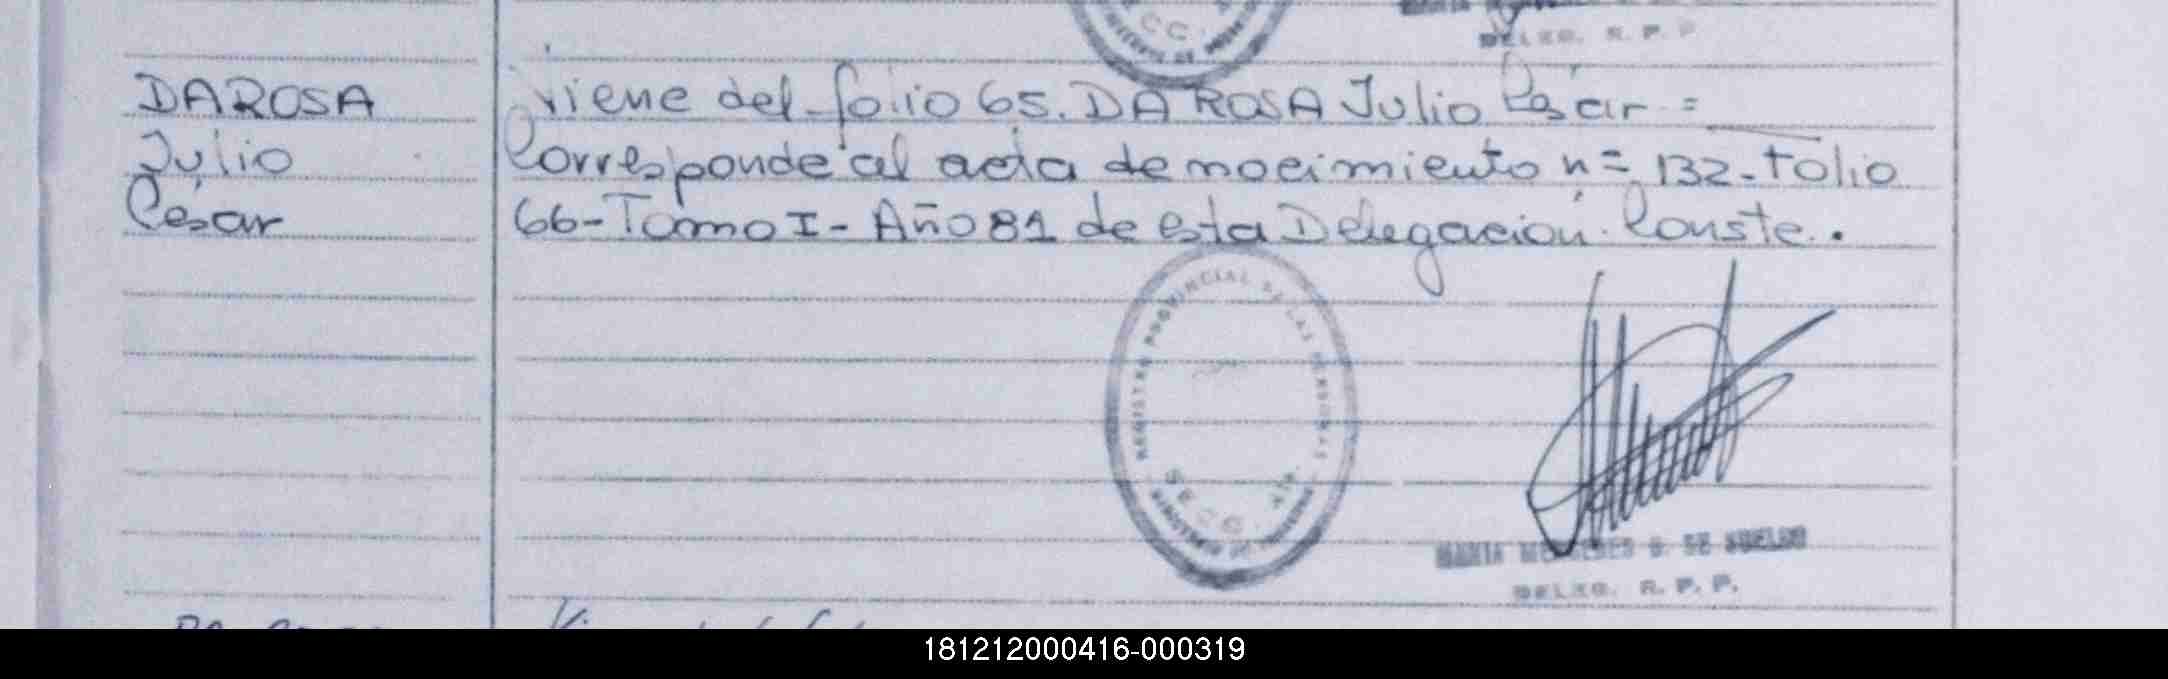 DELEG. R. P. P
DA ROSA
Julio
César
Viene del folio 65. DA ROSA Julio César =
Corresponde al acta de nacimiento n= 132- Folio
66- Tomo I - Año 81 de esta Delegación. Conste.
REGISTRO PROVINCIAL DE LAS PERSONAS
SECC.
MINISTERIO DE
MARIA MERCEDES G. DE
DELEG. R. P. P.
181212000416-000319